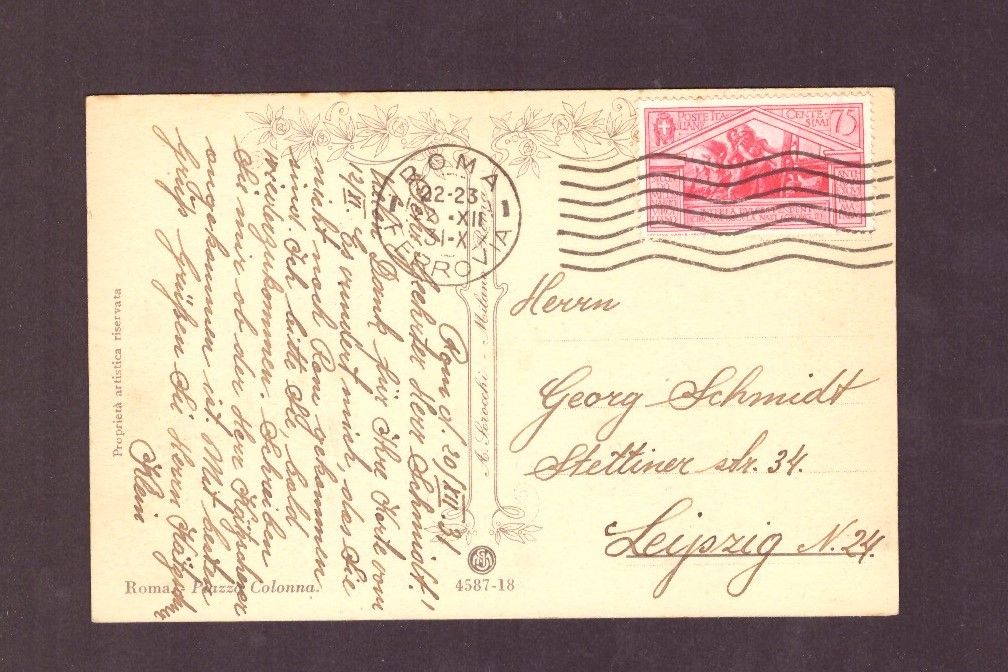 POSTE ITALIANE
CENTESIMI
75
ROMA
22-23
XII
31-X
FERROVIA
Herrn
Georg Schmidt
Stettiner str. 34.
Leipzig N. 24.
Rom d. 20/XII. 31
Sehr geehrter Herr Schmidt!
Besten Dank für Ihre Karte vom
12/XII. Es wundert mich, das Sie
nicht nach Rom gekommen
sind. Ich bitte Sie, bald
wiederzukommen. Schreiben
Sie mir ob der Herr
angekommen ist. Mit besten
Grüße Grüßen Sie Herrn
Klein
A. Scrocchi - Milano
Proprietà artistica riservata
Roma - Piazza Colonna.
4587-18